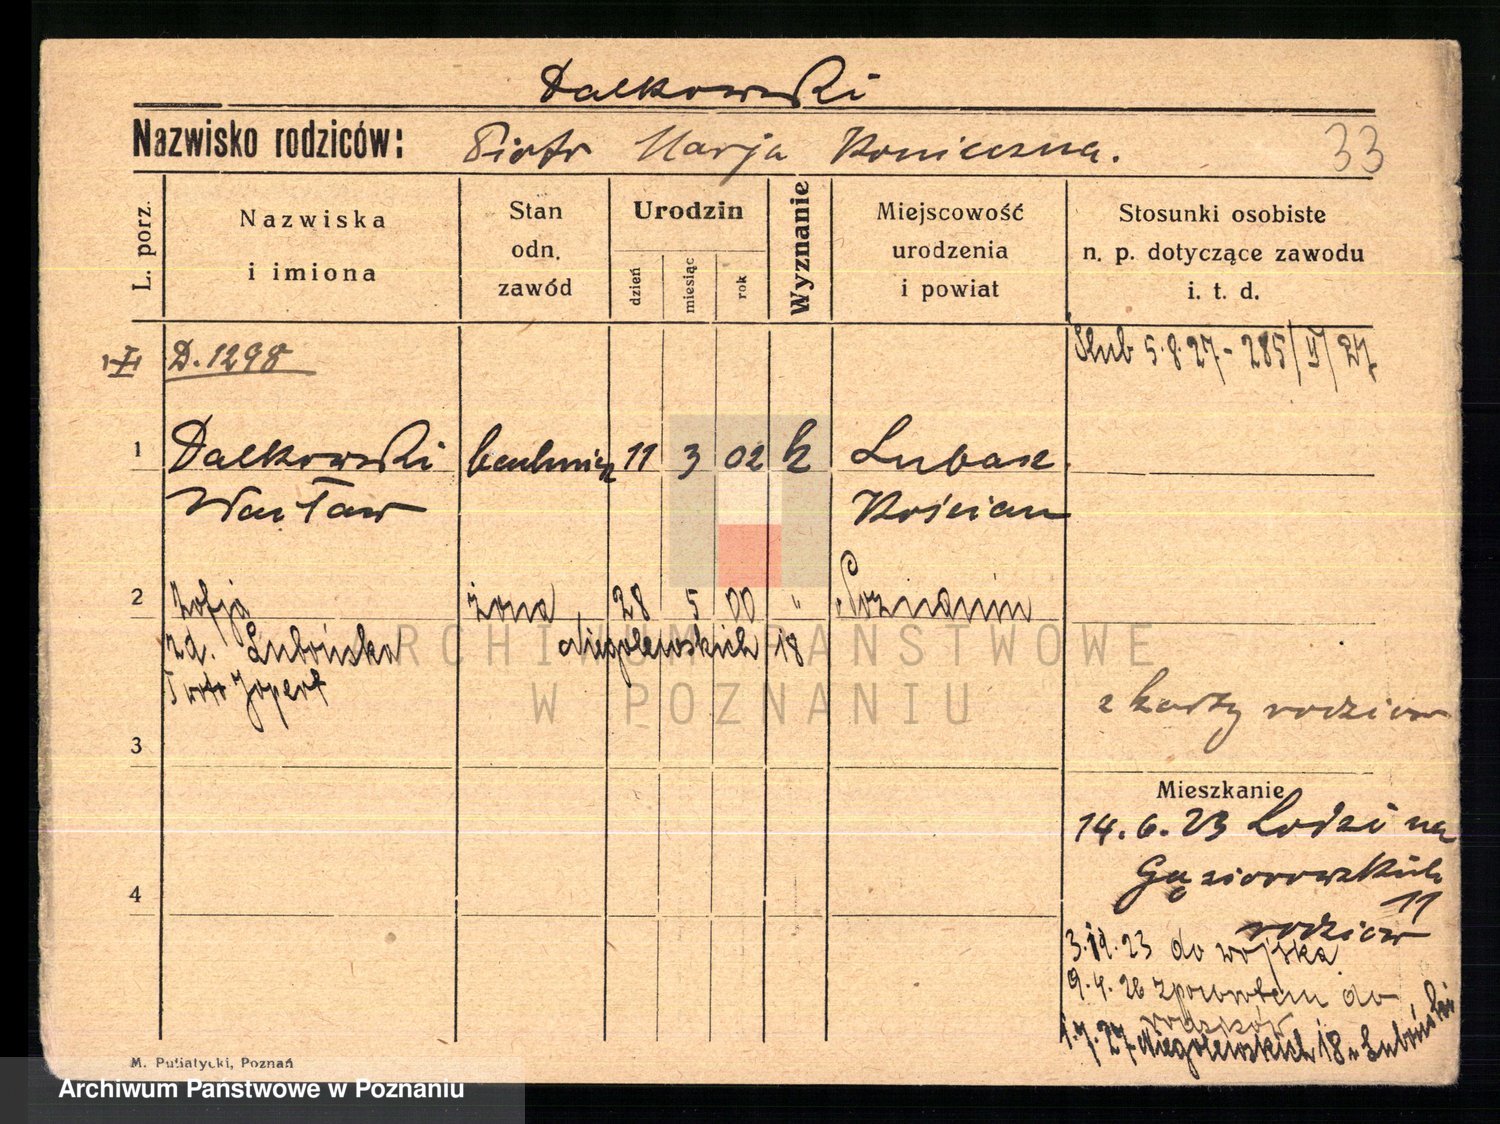 Dalkowski
Nazwisko rodziców: Piotr Marja Konieczna. 33
L. porz.
Nazwiska
i imiona
Stan
odn.
zawód
Urodzin
dzień
miesiąc
rok
Wyznanie
Miejscowość
urodzenia
i powiat
Stosunki osobiste
n. p. dotyczące zawodu
i. t. d.
D. 1298
Ślub 5.8.27 - 285/II/27
1 Dalkowski 11 3 02 k
Wacław Kościan
2 Zofja żona 28 5 00 " Poznanin
zd. Lubońska Niegolewskich 18
Piotr Józef
z karty rodziców
3
Mieszkanie
14.6.23 Łodzi na
Gąsiorowskich
11
rodziców
4
3.11.23 do wojska
9.4.26 zpowrotem do
rodziców
1.7.27 Niegolewskich 18 u Luboński
M. Putiatycki, Poznań
ARCHIWUM PAŃSTWOWE
W POZNANIU
Archiwum Państwowe w Poznaniu